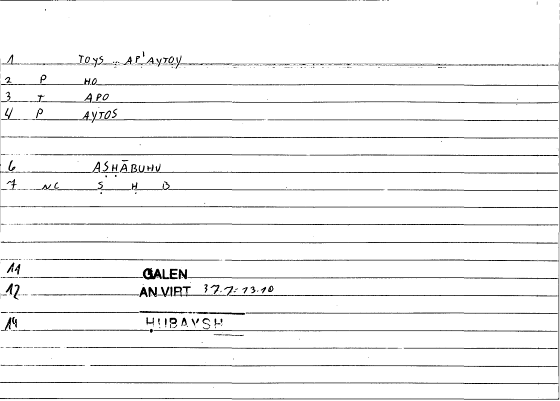 1 TOYS .. AP'AYTOY
2 P HO
3 T APO
4 P AYTOS
6 AṢḤĀBUHU
7 NC Ṣ Ḥ B
11 GALEN
12 AN VIRT 37.7: 13.10
14 ḤUBAYSH